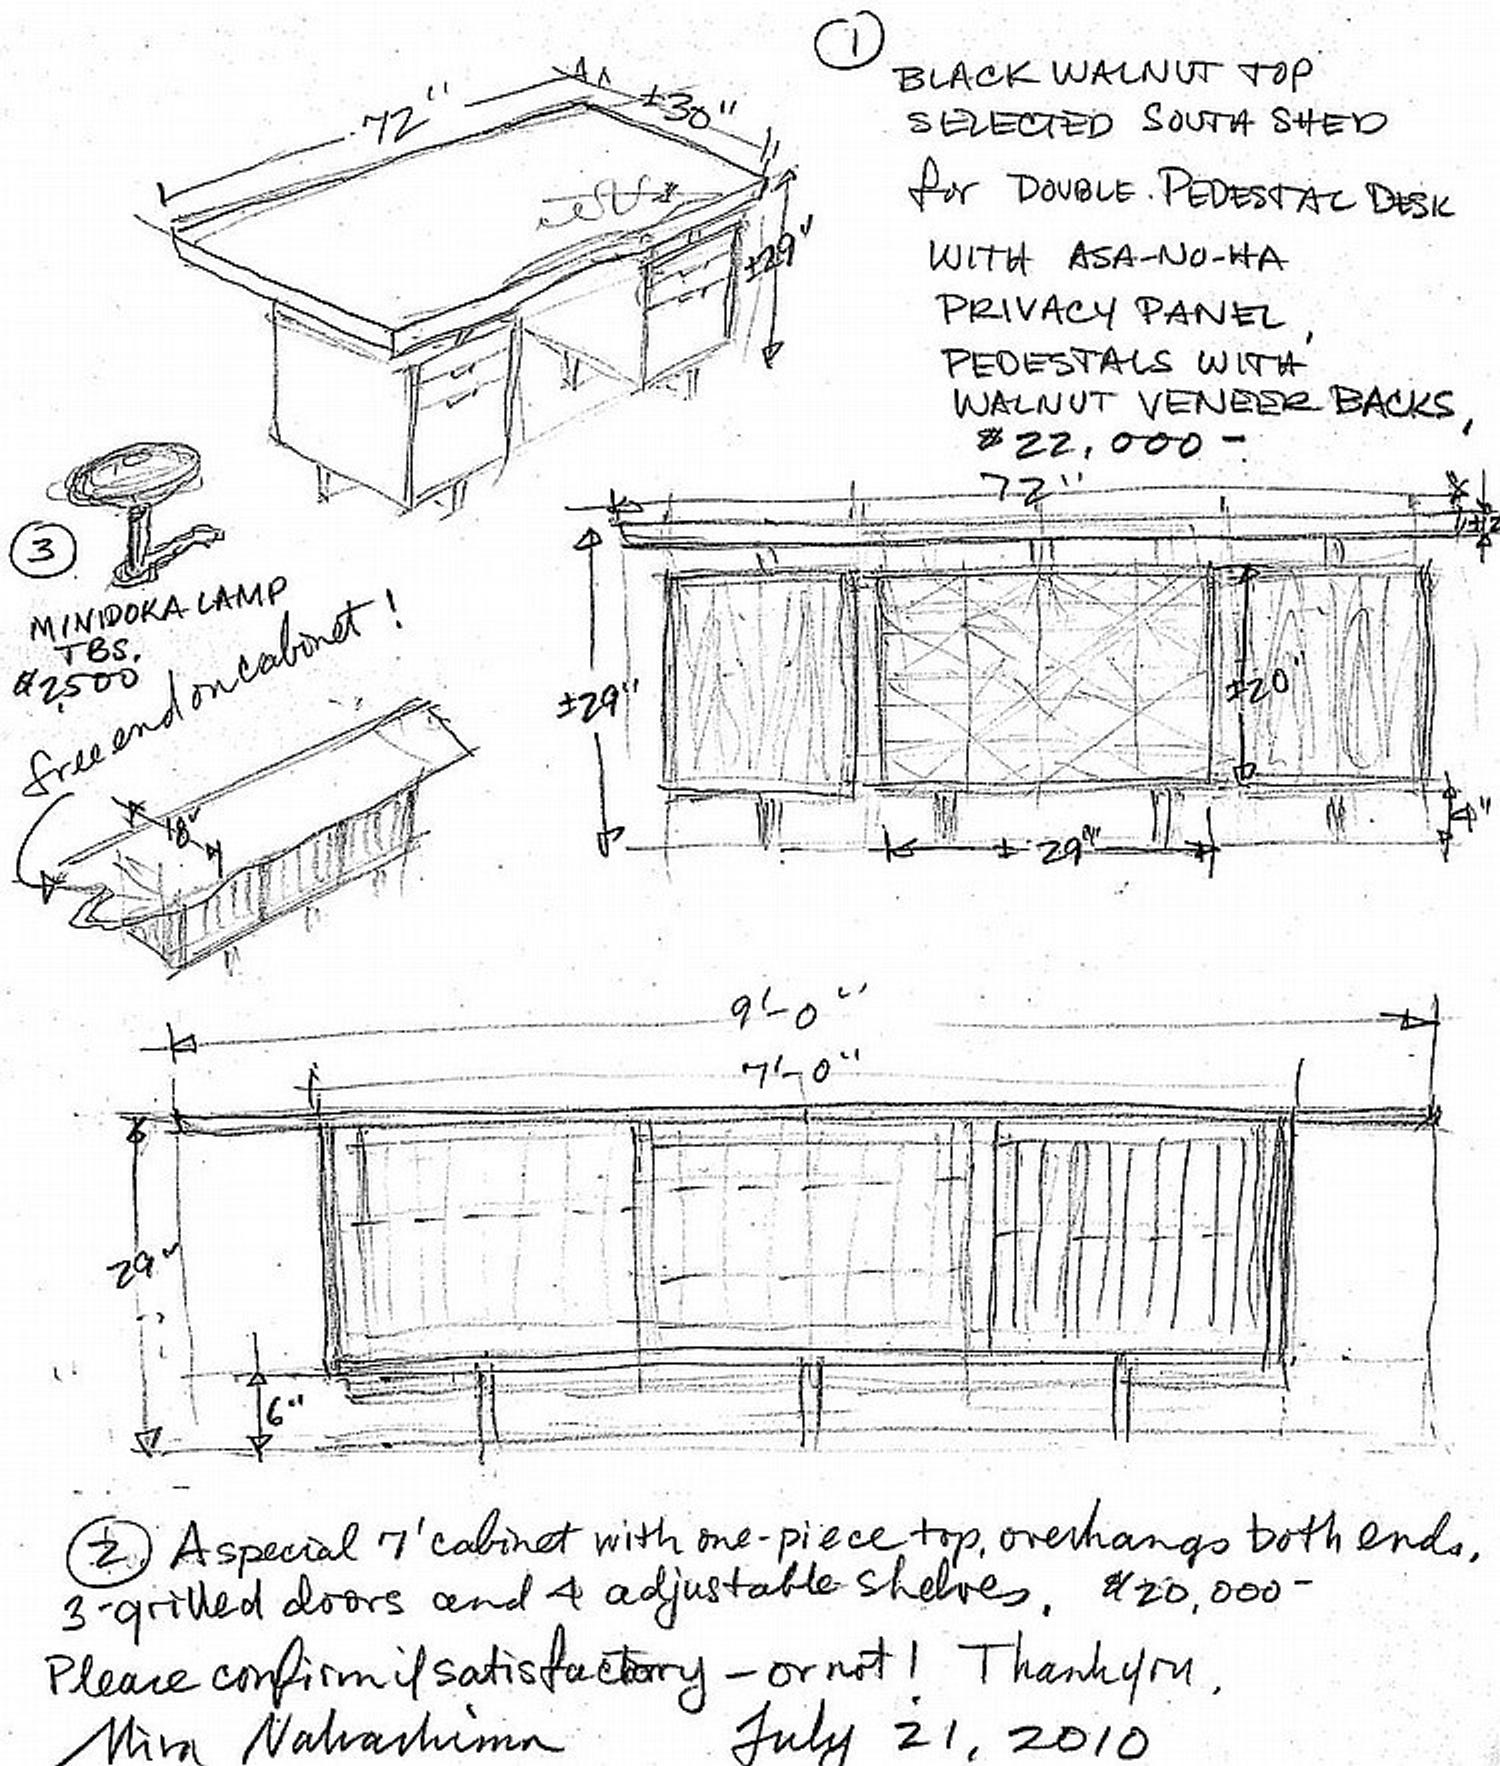 1
BLACK WALNUT TOP
SELECTED SOUTH SHED
for DOUBLE PEDESTAL DESK
WITH ASA-NO-HA
PRIVACY PANEL,
PEDESTALS WITH
WALNUT VENEER BACKS,
$22,000-
72"
±30"
±29"
3
MINIDOKA LAMP
TBS.
$2500
free end on cabinet!
18"
72"
±29"
±20"
4"
±29"
9'-0"
7'-0"
29"
6"
2 A special 7' cabinet with one-piece top, overhangs both ends,
3-grilled doors and 4 adjustable shelves. $20,000-
Please confirm if satisfactory - or not! Thank you,
Mira Nakashima July 21, 2010